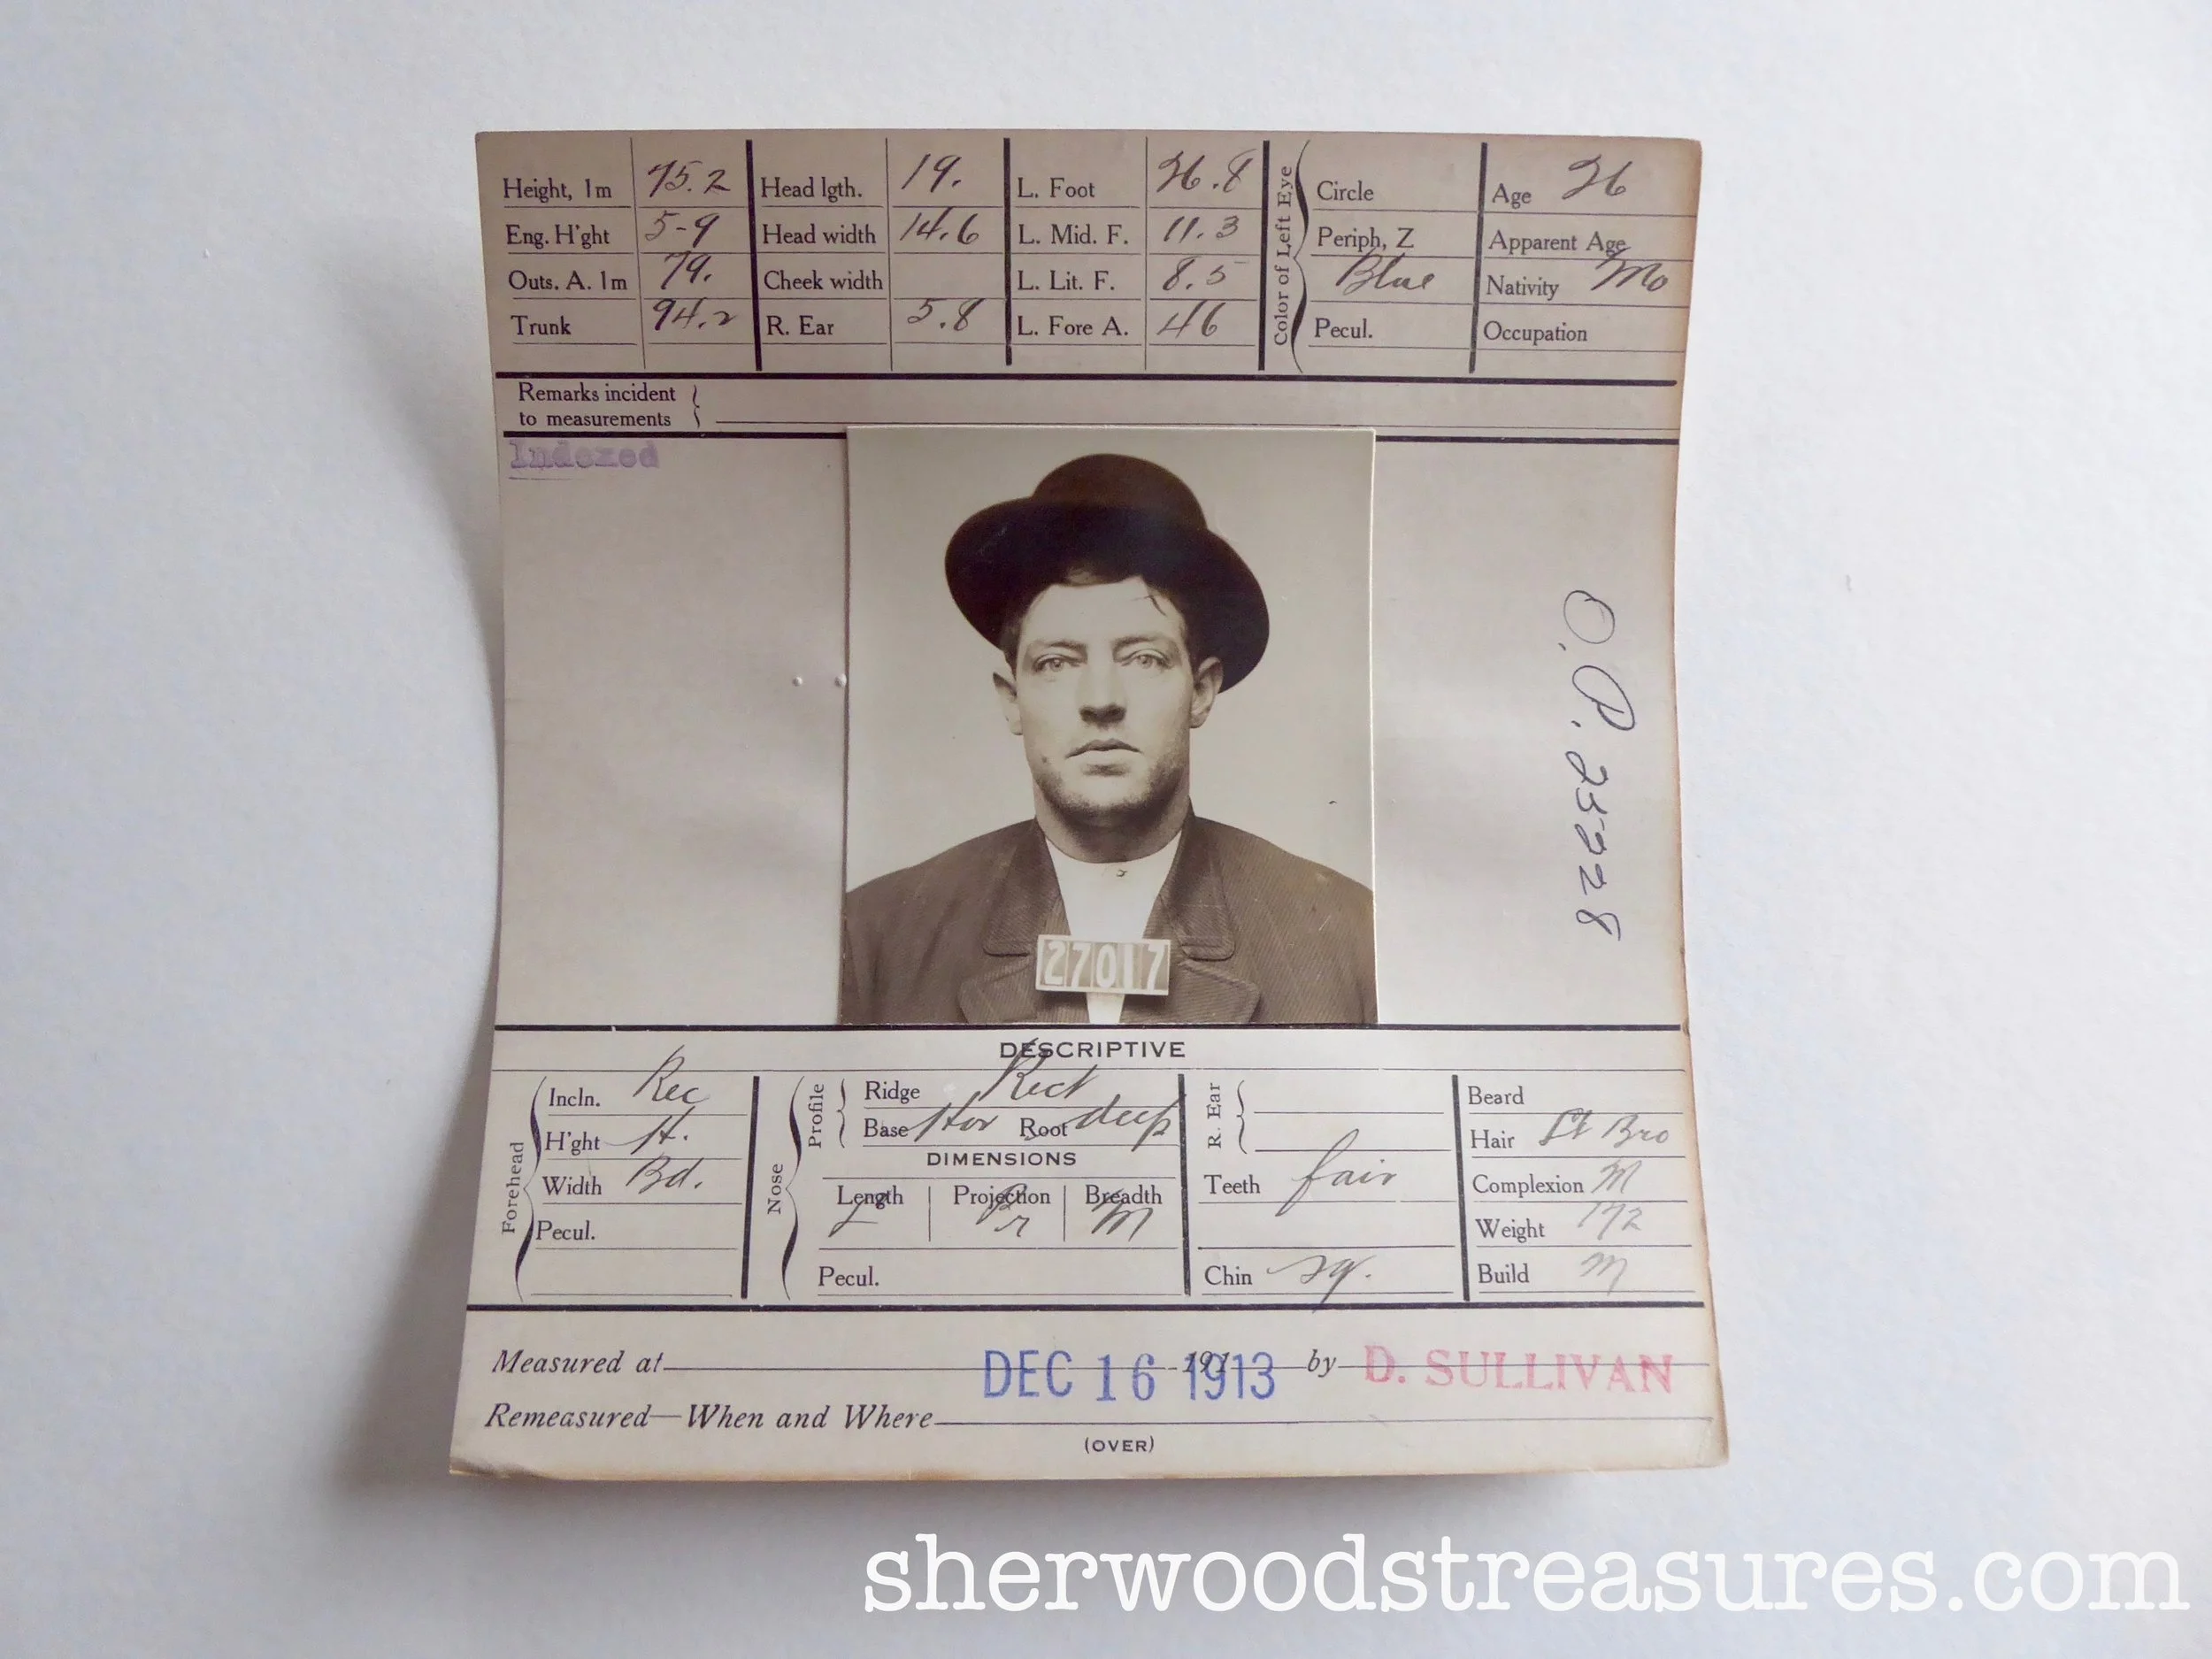 Height, 1m 75.2 Head lgth. 19. L. Foot 26.8 Circle Age 26
Eng. H'ght 5-9 Head width 14.6 L. Mid. F. 11.3 Periph, Z Apparent Age
Outs. A. 1m 79. Cheek width L. Lit. F. 8.5 Blue Nativity Mo
Trunk 94.2 R. Ear 5.8 L. Fore A. 46 Pecul. Occupation
Color of Left Eye
Remarks incident
to measurements
Indexed
O.P. 25228
27017
DESCRIPTIVE
Forehead
Incln. Rec
H'ght H.
Width Bd.
Pecul.
Nose
Profile
Ridge Rect
Base Hor Root deep
DIMENSIONS
Length Projection Breadth
L Pr M
Pecul.
R. Ear
Teeth fair
Chin sq.
Beard
Hair Lt Bro
Complexion M
Weight 172
Build M
Measured at DEC 16 1913 191 by D. SULLIVAN
Remeasured—When and Where
(OVER)
sherwoodstreasures.com